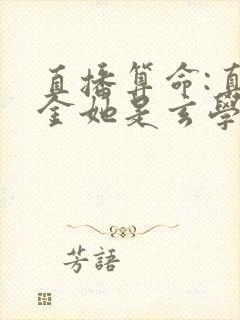 直播算命:真
金她是玄學
芳語